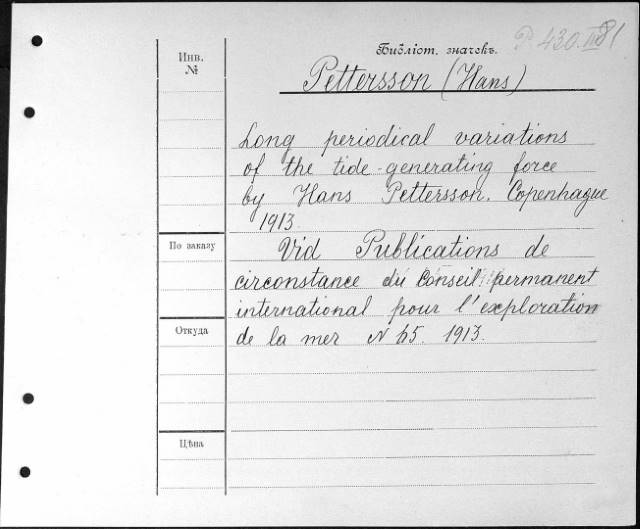 Библіот. значекъ. P. 430. III 81
Инв. №
Pettersson (Hans)
Long periodical variations
of the tide-generating force
by Hans Pettersson. Copenhague
1913.
По заказу
Vid Publications de
circonstance du Conseil permanent
international pour l'exploration
Откуда
de la mer N 65. 1913.
Цѣна